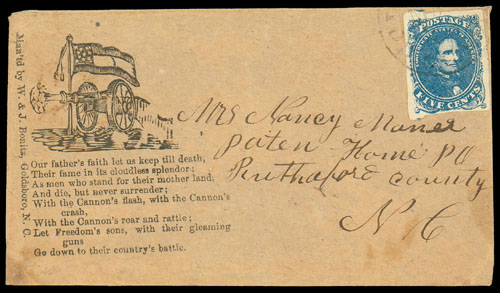 Man'fd by W. & J. Bonitz, Goldsboro, N. C.
Our father's faith let us keep till death,
Their fame in its cloudless splendor;
As men who stand for their mother land,
And die, but never surrender;
With the Cannon's flash, with the Cannon's
crash,
With the Cannon's roar and rattle;
Let Freedom's sons, with their gleaming
guns
Go down to their country's battle.
POSTAGE
FIVE CENTS
Mrs Nancy
Home PO
County
N C